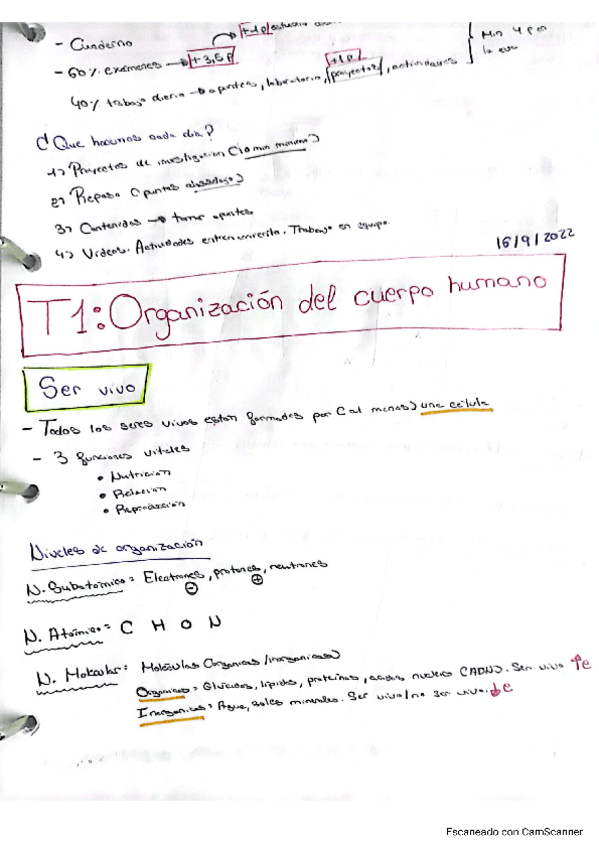 - Cuaderno
- 60% exámenes → +3,5p
40% trabajo diario → apuntes, laboratorio, proyectos, actividades
+1p
Min 4 por
¿Que hacemos cada día?
1) Proyectos de investigación (10 min minimo)
2) Repaso (puntos)
3) Contenidos → tomar apuntes
4) Videos. Actividades entren. Trabajo en equipo.
16/9/2022
T1: Organización del cuerpo humano
Ser vivo
- Todos los seres vivos están formados por (al menos) una célula
- 3 funciones vitales
• Nutrición
• Relación
• Reproducción
Niveles de organización
N. Subatómico = Electrones, protones, neutrones
⊖ ⊕
N. Atómico = C H O N
N. Molecular: Moléculas (organicas/inorganicas)
Organicas = Glúcidos, lípidos, proteínas, acidos nucleico (ADN). Ser vivo ↑e
Inorganicas = Agua, sales minerales. Ser vivo/no ser vivo. ↓e
Escaneado con CamScanner